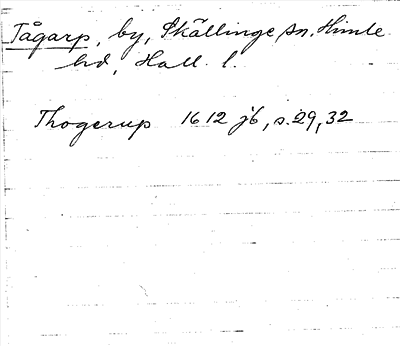 Tågarp, by, Skällinge sn, Himle
hd, Hall. l.
Thogerup 1612 jb, s. 29, 32